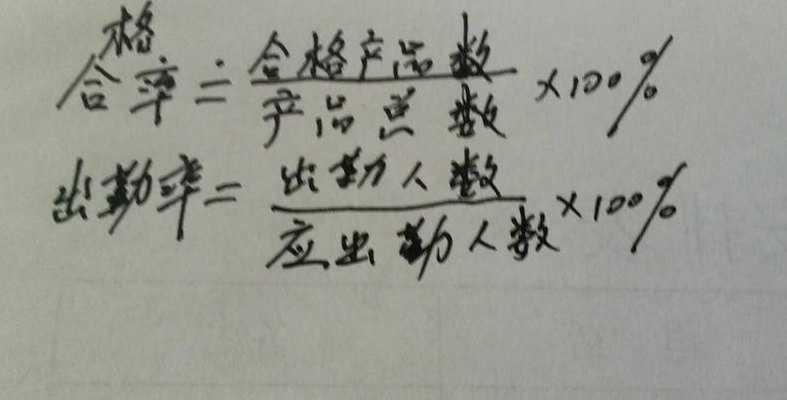 合格率=合格产品数/产品总数×100%
出勤率=出勤人数/应出勤人数×100%